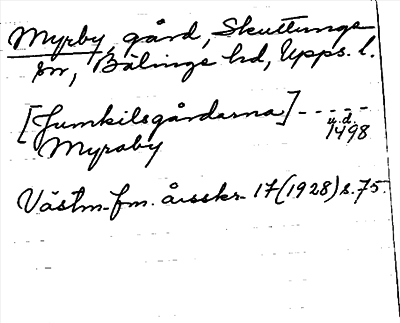 Myrby, gård, Skuttunge
sn, Bälinge hd, Upps. l.
[Jumkilsgårdarna] - - - - -
u. d.
1498
Myraby
Västm. fm. årsskr. 17 (1928) s. 75.